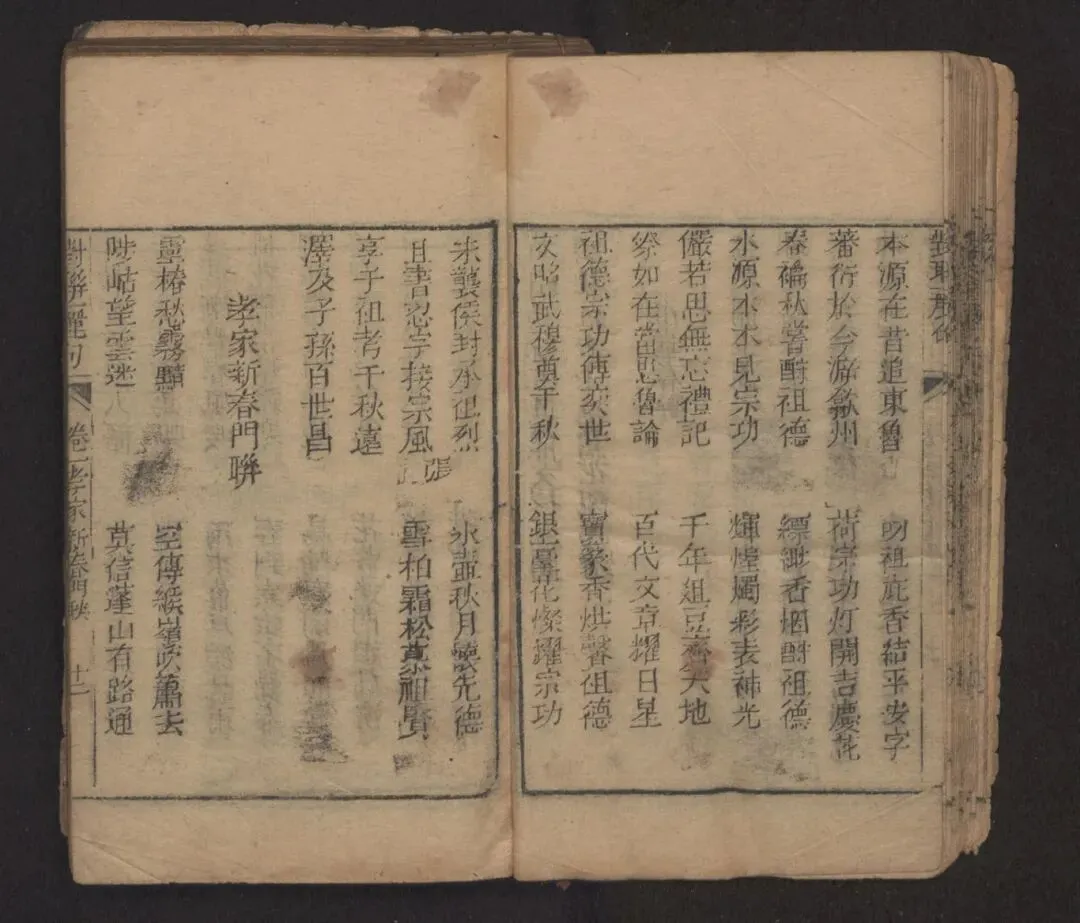 本源在昔追東魯
明祖庇香結平安字
蕃衍於今溯歙州
荷宗功灯開吉慶花
春禴秋嘗酧祖德
縹緲香烟酧祖德
水源木本見宗功
輝煌燭彩表神光
儼若思無忘禮記
千年俎豆齊天地
祭如在當思魯論
百代文章耀日星
祖德宗功傳奕世
寶篆香烘馨祖德
文昭武穆奠千秋
銀臺花燦耀宗功
未襲侯封承祖烈
冰壺秋月懷先德
且書忍字接宗風
張
雪柏霜松慕祖賢
享于祖考千秋遠
澤及子孫百世昌
孝家新春門聨
靈椿愁霧黯
空傳緱嶺吹簫去
陟岵望雲迷
莫信蓬山有路通
對聨麗句
卷一孝家新春門聨
十二